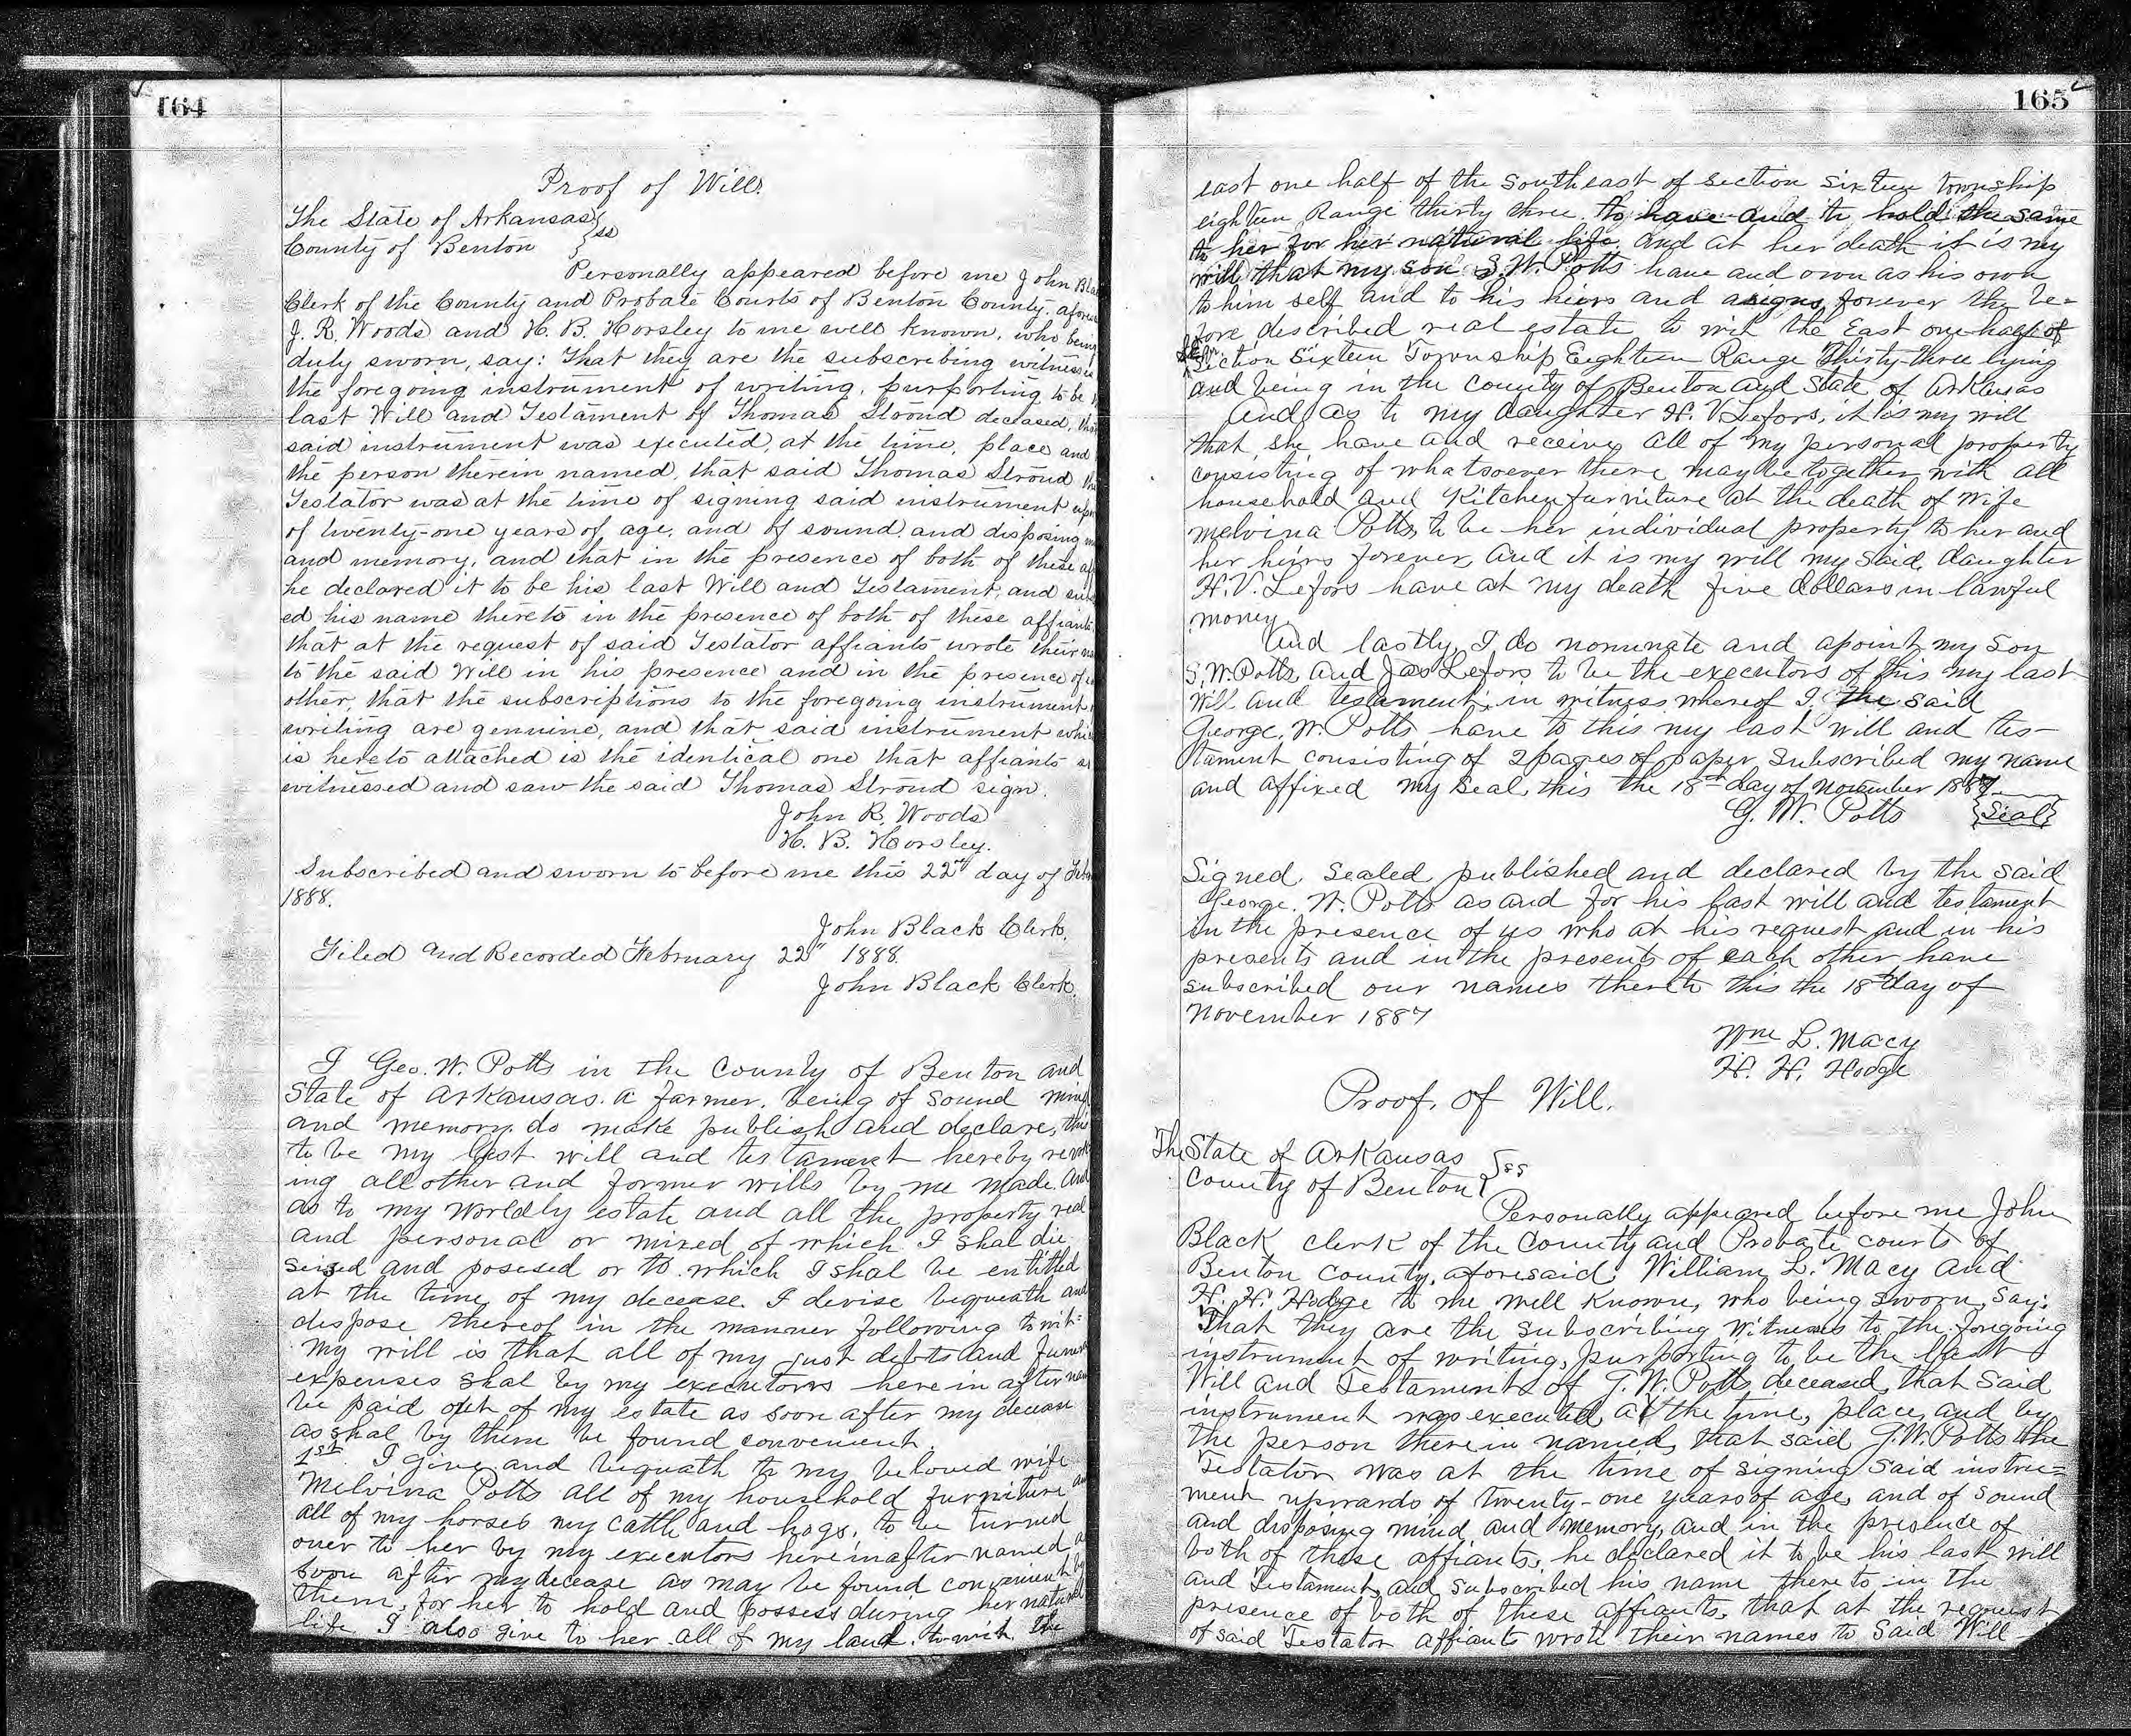 164
Proof of Will.
The State of Arkansas }
County of Benton } ss
Personally appeared before me John Bla
Clerk of the County and Probate Courts of Benton County, afores
J. R. Woods and H. B. Horsley to me well known, who being
duly sworn, say: That they are the subscribing witnesses
the foregoing instrument of writing, purporting to be
last Will and Testament of Thomas Stroud deceased, that
said instrument was executed, at the time, place and
the person therein named, that said Thomas Stroud the
Testator was at the time of signing said instrument up
of twenty-one years of age, and of sound, and disposing
and memory, and that in the presence of both of these af
he declared it to be his last Will and Testament, and su
ed his name thereto in the presence of both of these affiants,
that at the request of said Testator affiants wrote their na
to the said Will in his presence and in the presence of
other, that the subscriptions to the foregoing instrument
writing are genuine, and that said instrument whi
is hereto attached is the identical one that affiants
witnessed and saw the said Thomas Stroud sign.
John R. Woods
H. B. Horsley.
Subscribed and sworn to before me this 22nd day of Feb
1888.
John Black Clerk.
Filed and Recorded February 22" 1888.
John Black Clerk.
I Geo. W. Potts in the County of Benton and
State of Arkansas. a farmer. being of sound mind
and memory. do make publish and declare, this
to be my last will and testament hereby revok
ing all other and former wills by me made. And
as to my worldly estate and all the property real
and personal or mixed of which I shal die
seized and posesed or to which I shal be entitled
at the time of my decease. I devise bequeath and
dispose thereof in the manner following to wit:
My will is that all of my just debts and funer
expenses shal by my executors here in after nam
be paid out of my estate as soon after my decease
as shal by them be found convenient.
1st I give and bequath to my beloved wife
Melvina Potts all of my household furniture an
all of my horses my cattle and hogs. to be turned
over to her by my executors hereinafter named a
soon after my decease as may be found convenient by
them, for her to hold and possess during her natural
life I also give to her all of my land. to wit. the
165
east one half of the Southeast of section sixteen township
eighteen Range thirty three. to have and to hold the same
to her for her natural life. and at her death it is my
will that my son S. W. Potts have and own as his own
to him self and to his heirs and asigns forever the be=
fore described real estate to wit the East one half of
SE 1/4 Section Sixteen Township Eighteen Range Thirty-three lying
and being in the county of Benton and State of Arkansas
And as to my daughter H. V. Lefors, it is my will
that she have and receive all of my personal property
consisting of whatsoever there may be together with all
household and Kitchen furniture at the death of wife
Melvina Potts to be her individual property to her and
her heirs forever. And it is my will my said daughter
H. V. Lefors have at my death five dollars in lawful
money
And lastly I do nominate and apoint my son
S. W. Potts and Jas Lefors to be the executors of this my last
Will and testament. in witness whereof I the said
George. W. Potts have to this my last will and tes-
tament consisting of 2 pages of paper subscribed my name
and affixed my seal this the 18th day of November 1887
G. W. Potts {Seal}
Signed. Sealed published and declared by the said
George. W. Potts as and for his last will and testament
in the presence of us who at his request and in his
presents and in the presents of each other have
subscribed our names thereto this the 18th day of
November 1887
Wm L. Macy
H. H. Hodge
Proof of Will.
The State of Arkansas }
County of Benton } ss
Personally appeared before me John
Black clerk of the County and Probate courts of
Benton County, aforesaid William L. Macy and
H. H. Hodge to me well known, who being sworn, say:
That they are the subscribing witnesses to the foregoing
instrument of writing, purporting to be the last
Will and Testament of G. W. Potts deceased, that said
instrument was executed, at the time, place, and by
the person therein named, that said G. W. Potts the
Testator was at the time of signing said instru=
ment upwards of twenty-one years of age, and of sound
and disposing mind and memory, and in the presence of
both of these affiants, he declared it to be his last will
and Testament, and subscribed his name thereto in the
presence of both of these affiants. that at the request
of said Testator affiants wrote their names to said Will